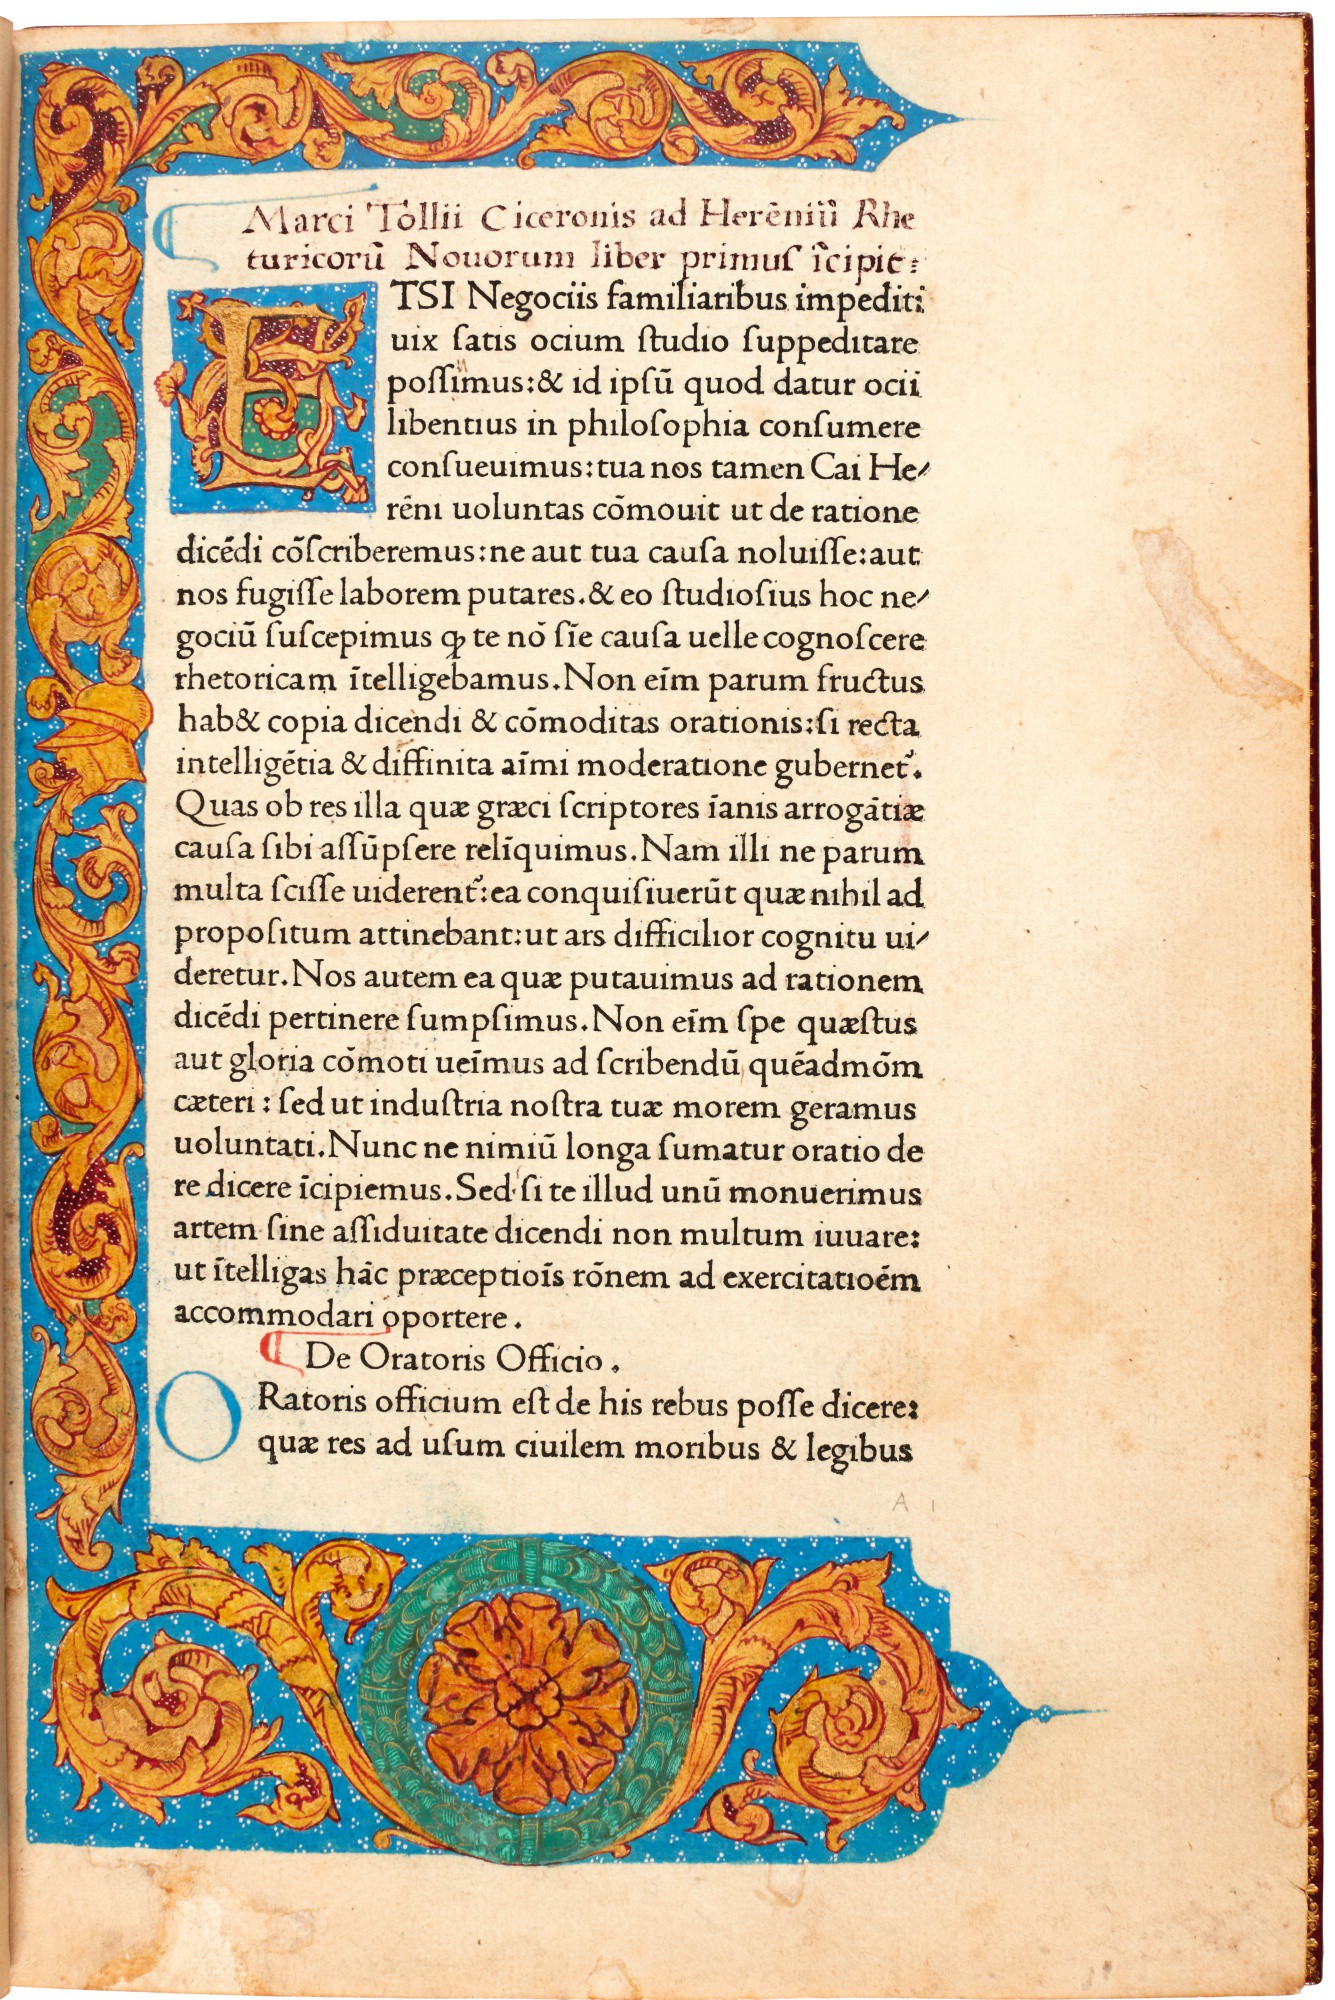 Marci Tollii Ciceronis ad Herēniū Rhe
turicorū Nouorum liber primuſ ĩcipit:
ETSI Negociis familiaribus impediti
uix ſatis ocium ſtudio ſuppeditare
poſſimus:& id ipſū quod datur ocii
libentius in philoſophia conſumere
conſueuimus:tua nos tamen Cai He⸗
rēni uoluntas cōmouit ut de ratione
dicēdi cōſcriberemus:ne aut tua cauſa noluiſſe:aut
nos fugiſſe laborem putares.& eo ſtudioſius hoc ne⸗
gociū ſuſcepimus ꝙ te nō ſīe cauſa uelle cognoſcere
rhetoricam ītelligebamus.Non eīm parum fructus
hab& copia dicendi & cōmoditas orationis:ſi recta
intelligētia & diffinita aīmi moderatione gubernet᷑.
Quas ob res illa quæ græci ſcriptores īanis arrogātiæ
cauſa ſibi aſſūpſere relīquimus.Nam illi ne parum
multa ſciſſe uiderent᷑:ea conquiſiuerūt quæ nihil ad
propoſitum attinebant:ut ars difficilior cognitu ui⸗
deretur.Nos autem ea quæ putauimus ad rationem
dicēdi pertinere ſumpſimus.Non eīm ſpe quæſtus
aut gloria cōmoti ueīmus ad ſcribendū quēadmōm
cæteri: ſed ut induſtria noſtra tuæ morem geramus
uoluntati.Nunc ne nimiū longa ſumatur oratio de
re dicere īcipiemus.Sed ſi te illud unū monuerimus
artem ſine aſſiduitate dicendi non multum iuuare:
ut ītelligas hāc præceptioīs rōnem ad exercitatioēm
accommodari oportere.
De Oratoris Officio.
ORatoris officium eſt de his rebus poſſe dicere:
quæ res ad uſum ciuilem moribus & legibus
A 1